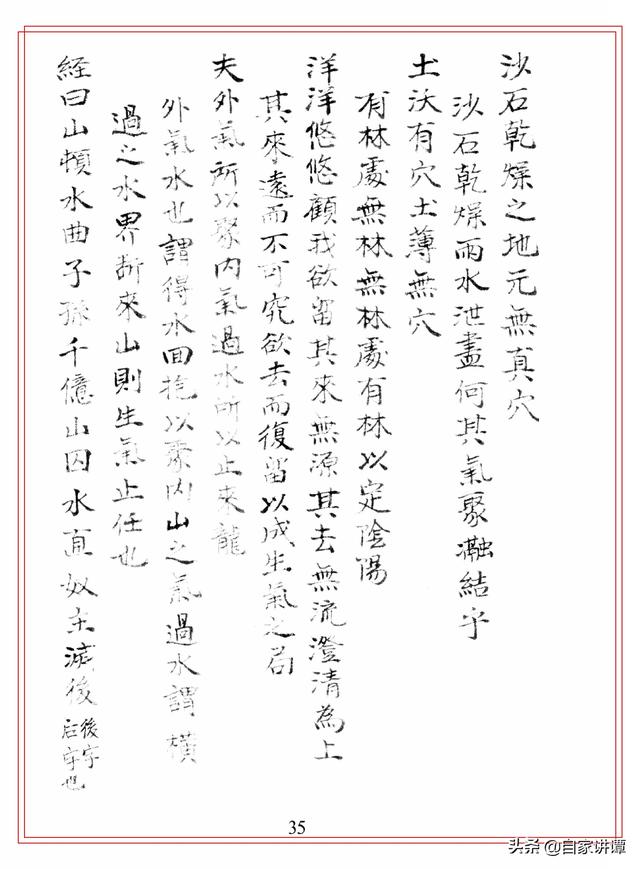 沙石乾燥之地元無真穴
沙石乾燥雨水泄盡何其氣聚瀜結乎
土沃有穴土薄無穴
有林處無林無林處有林以定陰陽
洋洋悠悠顧我欲留其來無源其去無流澄清為上
其來遠而不可究欲去而復留以成生氣之名
夫外氣所以聚內氣過水所以止來龍
外氣水也謂得水回抱以聚內山之氣過水謂橫
過之水界斷來山則生氣止任也
經曰山頓水曲子孫千億山囚水直奴主滅後後字
后字也
35
头条 @自家讲谭